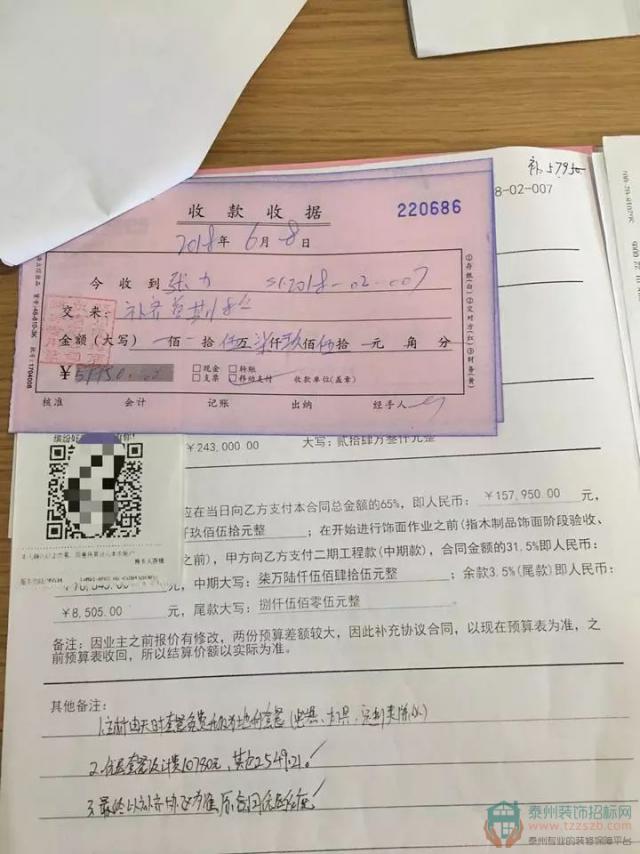 补 57950
8-02-007
收款收据 220686
2018年6月8日
今收到 张力 2018-02-007
交来:
金额(大写) 佰 拾伍万柒仟玖佰伍拾 元 角 分
¥57950.00 □现金 □转账
□支票 移动支付 收款单位(盖章)
核准 会计 记账 出纳 经手人
①存根(白)②交对方(红)③财务(黄)
¥243,000.00 大写:贰拾肆万叁仟元整
应在当日向乙方支付本合同总金额的65%,即人民币: ¥157,950.00 元,
仟玖佰伍拾元整 ;在开始进行饰面作业之前(指木制品饰面阶段验收、
之前),甲方向乙方支付二期工程款(中期款),合同金额的31.5%即人民币:
元,中期大写: 柒万陆仟伍佰肆拾伍元整 ;余款3.5%(尾款)即人民币:
¥8,505.00 元,尾款大写: 捌仟伍佰零伍元整
备注:因业主之前报价有修改,两份预算差额较大,因此补充协议合同,以现在预算表为准,之
前预算表收回,所以结算价额以实际为准。
其他备注:
1.主材由天时套餐
2. 套餐 计算10780元,其它2549.21.
3.最终以补充协议为准,原合同
泰州装饰招标网
www.tzzszb.com
泰州专业的装修保障平台